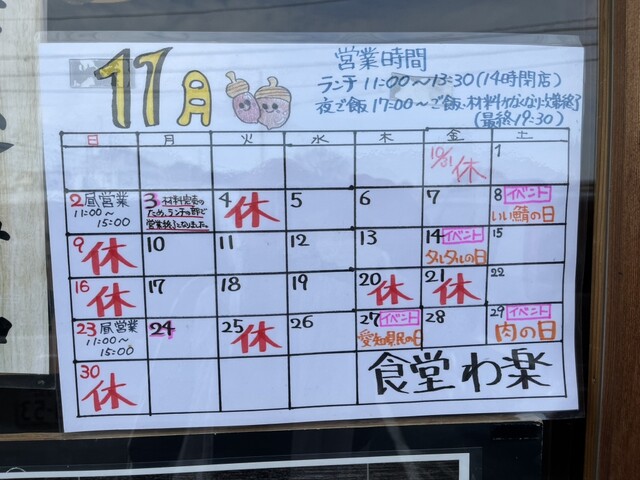 11月
営業時間
ランチ 11:00〜13:30(14時閉店)
夜ご飯 17:00〜ご飯、材料がなくなり次第終了
(最終19:30)
日 月 火 水 木 金 土
10/31 休 1
2 昼営業 11:00〜15:00 3 材料完売のため、ランチの部で営業終了となりました。 4 休 5 6 7 8 イベント いい鯖の日
9 休 10 11 12 13 14 イベント タルタルの日 15
16 休 17 18 19 20 休 21 休 22
23 昼営業 11:00〜15:00 24 25 休 26 27 イベント 愛知県民の日 28 29 イベント 肉の日
30 休
食堂 わ楽